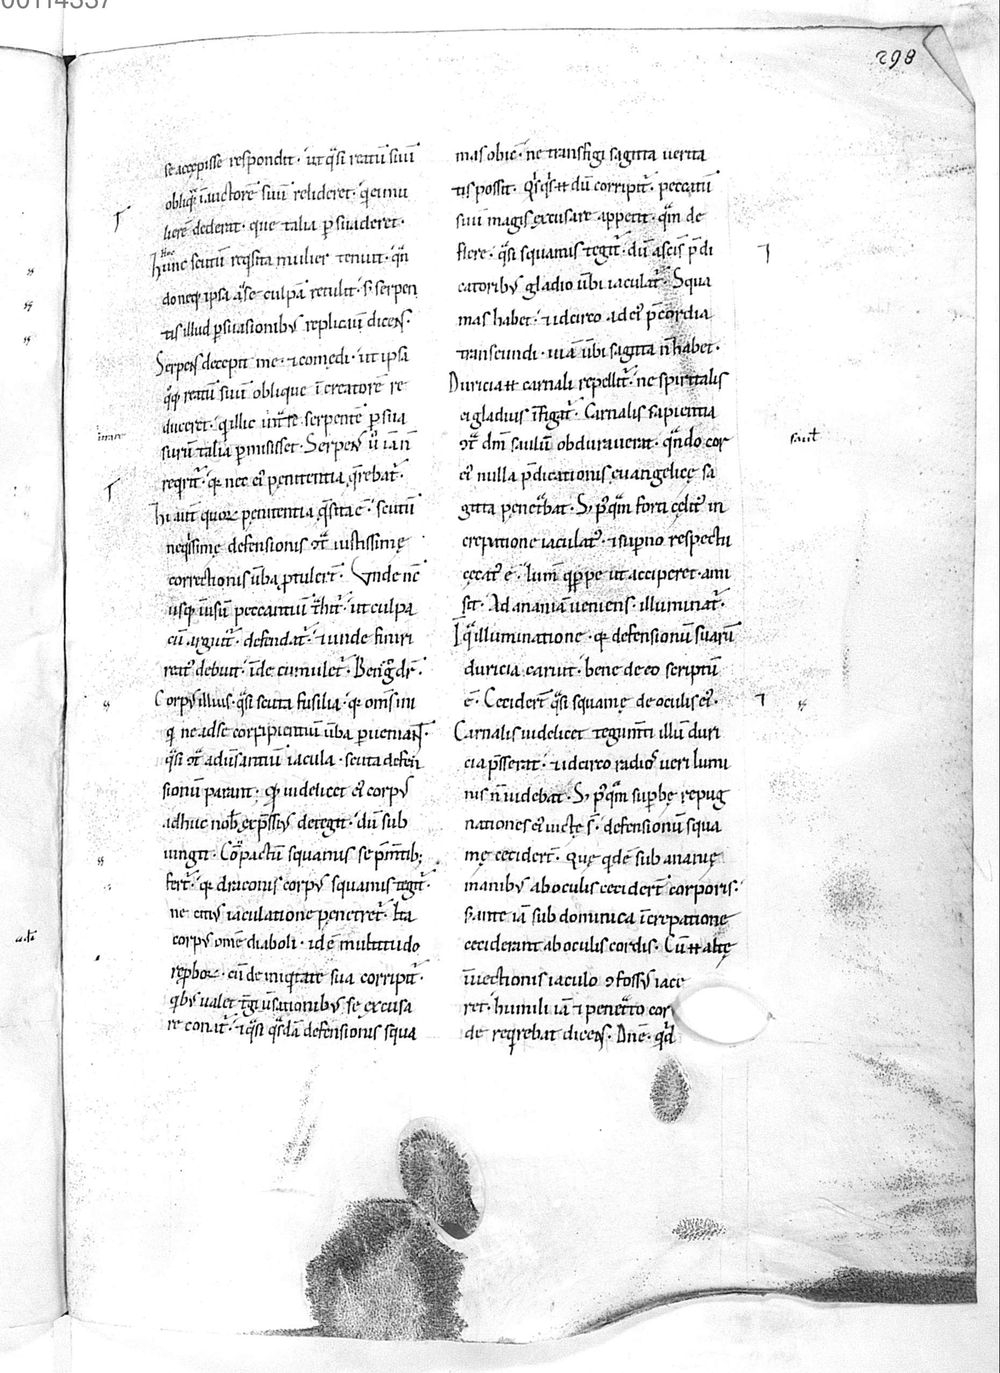 298
se accepisse respondit· ut q̄si reatū suū
obliq̨ i auctorē suū relideret· qͥ ei mu
lierē dederat· que talia ꝑsuaderet·
hunc scutū reqͥsita mulier tenuit· qn̄
donec ipsa a se culpā retulit· s; serpen
tis illud ꝑsuasionibꝰ replicauit dicens·
Serpens decepit me· ⁊ comedi· ut ipsa
q̨ reatū suū oblique ī creatorē re
duceret· qͥ illic intͣre serpentē ꝑsua
surū talia ꝑmisisset· Serpens ū iā n̄
reqͥrit̄· qͥ nec eiꝰ penitentia q̄rebat̄·
hi aut̄ quoꝝ penitentia q̄sita ē· scutū
neqͥssimę defensionis ↄtͣ iustissimę
correctionis ūba ꝓtulert̄· Vnde nc̄
usq̨ ī usū peccantiū tͣhit̄· ut culpa
cū arguit̄· defendat̄· ⁊ unde finiri
reatꝰ debuit· īde cumulet̄· Bene g̊ dr̄·
Corpꝰ illius· q̄si scuta fusilia· qͥ om̄s ini
qͥ ne ad se corripientiū ūba ꝑueniant·
q̄si ↄtͣ aduersantiū iacula· scuta defen
sionū parant· Qͩ uidelicet eiꝰ corpꝰ
adhuc nob̄ exp̄ssiꝰ detegit· dū sub
iungit· Cōpactū squamis se p̄mtibꝰ;
fert̄· qͥ draconis corpꝰ squamis tegit̄·
ne citiꝰ iaculatione penetret̄· Ita
corpꝰ om̄e diaboli· id ē multitudo
reproboꝝ· cū de iniqͥtate sua corripit̄·
qͥbꝰ ualet tḡiūsationibꝰ se excusa
re conat̄· ⁊ q̄si qͣsdā defensionis squa
mas obic̄· ne transfigi sagitta uerita
tis possit· Qͥsqͥs ē dū corripit̄· peccatū
suū magis excusare appetit· qͣm de
flere· q̄si squamis tegit̄· dū a sc̄is p̄di
catoribꝰ gladio ūbi iaculat̄· Squa
mas habet· ⁊ idcirco ad eiꝰ p̄cordia
transeundi· uiā ūbi sagitta n̄ habet·
Duricia ē carnali repellit̄· ne spiritalis
ei gladius īfigat̄· Carnalis sapientia
ↄtͣ dn̄m saulū obdurauerat· qn̄do cor
eiꝰ nulla p̄dicationis euangelicę sa
gitta penet̄bat· S; pꝰqͣm forti cęlitꝰ in
crepatione iaculatꝰ· ⁊ superno respectu
cęcatꝰ ē· lum̄ qͥppe ut acciperet ami
sit· Ad ananiā ueniens· illuminatꝰ·
In qͣ illuminatione· qͥ defensionū suarū
duricia caruit· bene de eo scriptū
ē· Cecidert̄ q̄si squamę de oculis eiꝰ·
Carnalis uidelicet tegim̄ti illū duri
cia p̄sserat· ⁊ idcirco radios ueri lumi
nis n̄ uidebat· S; pꝰqͣm suꝑbę repug
nationes eiꝰ uictę s̄· defensionū squa
mę cecidert̄· Quę qͥdē sub ananię
manibꝰ ab oculis cecidert̄ corporis·
s; ante iā sub dominica īcrepatione
ceciderant ab oculis cordis· Cū ē altę
īuectionis iaculo ↄfossꝰ iace
ret· humili iā ⁊ penet̄to cor
de reqͥrebat dicens· Dn̄e· qͥd